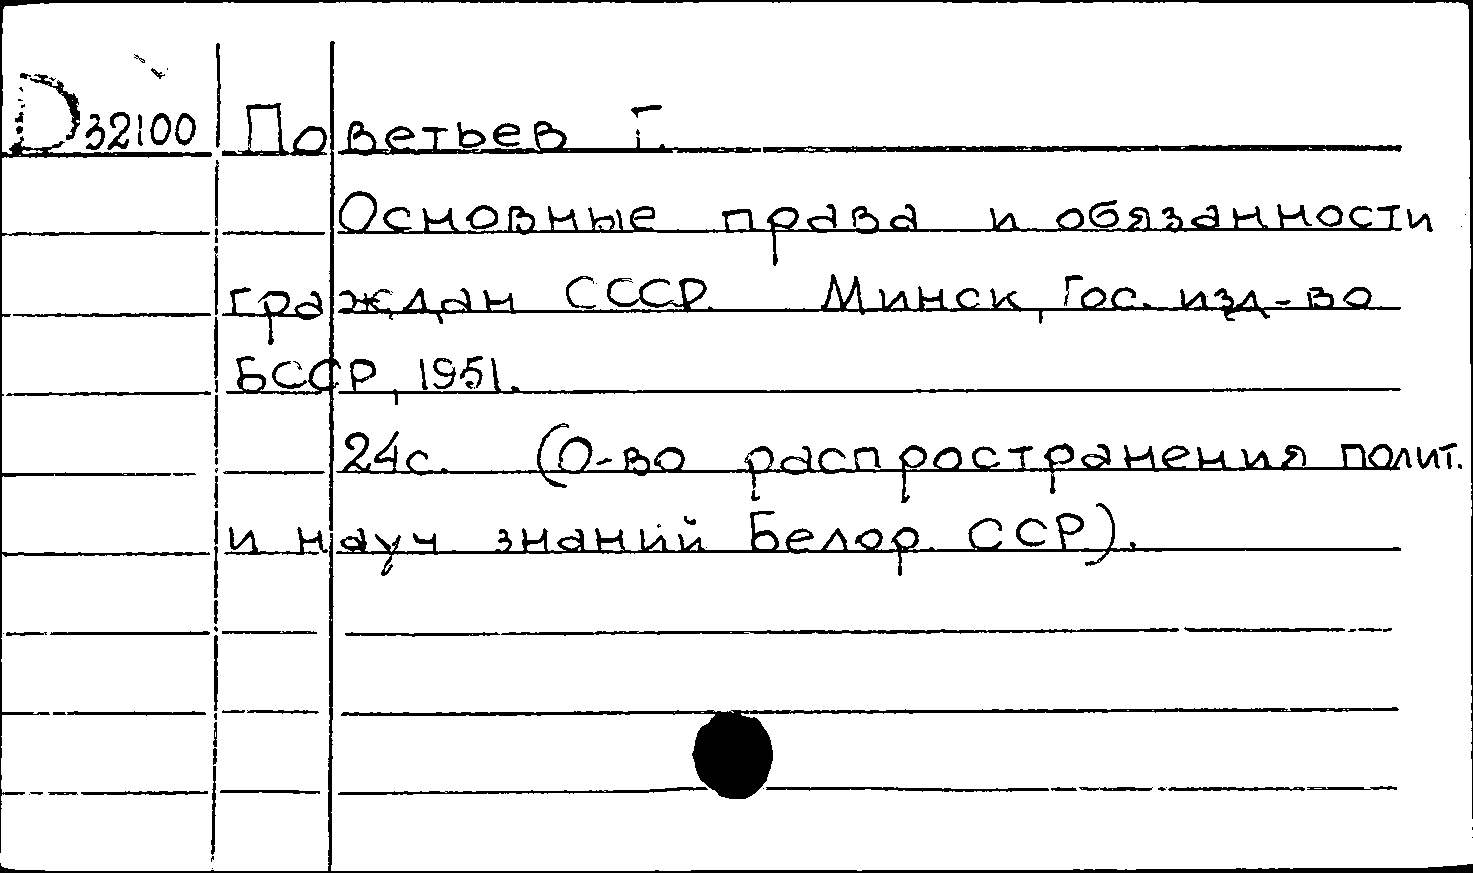 D 32100 Поветьев Г.
Основные права и обязанности
граждан СССР. Минск, Гос. изд-во
БССР, 1951.
24с. (О-во распространения полит.
и науч. знаний Белор. ССР).